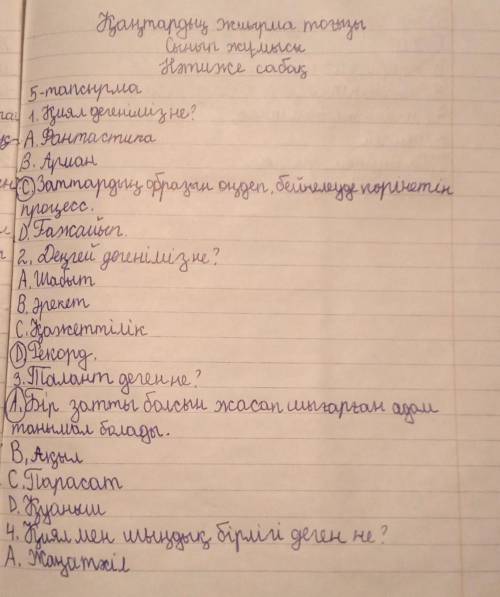 Қаңтардың жиырма тоғызы
Сынып жұмысы
Нәтиже сабақ
5-тапсырма
1. Қиял дегеніміз не?
A. Фантастика
B. Арман
C Заттардың образын өңдеп, бейнелеуде көрінетін
процесс.
D. Ғажайып.
2. Деңгей дегеніміз не?
A. Шабыт
B. Әрекет
C. Қажеттілік
D Рекорд.
3. Талант деген не?
A. Бір затты болсын жасап шығарған адам
танымал болады.
B, Ақыл
C. Парасат
D. Қуаныш
4. Қиял мен шыңдық бірлігі деген не?
A. Жаңатхіл